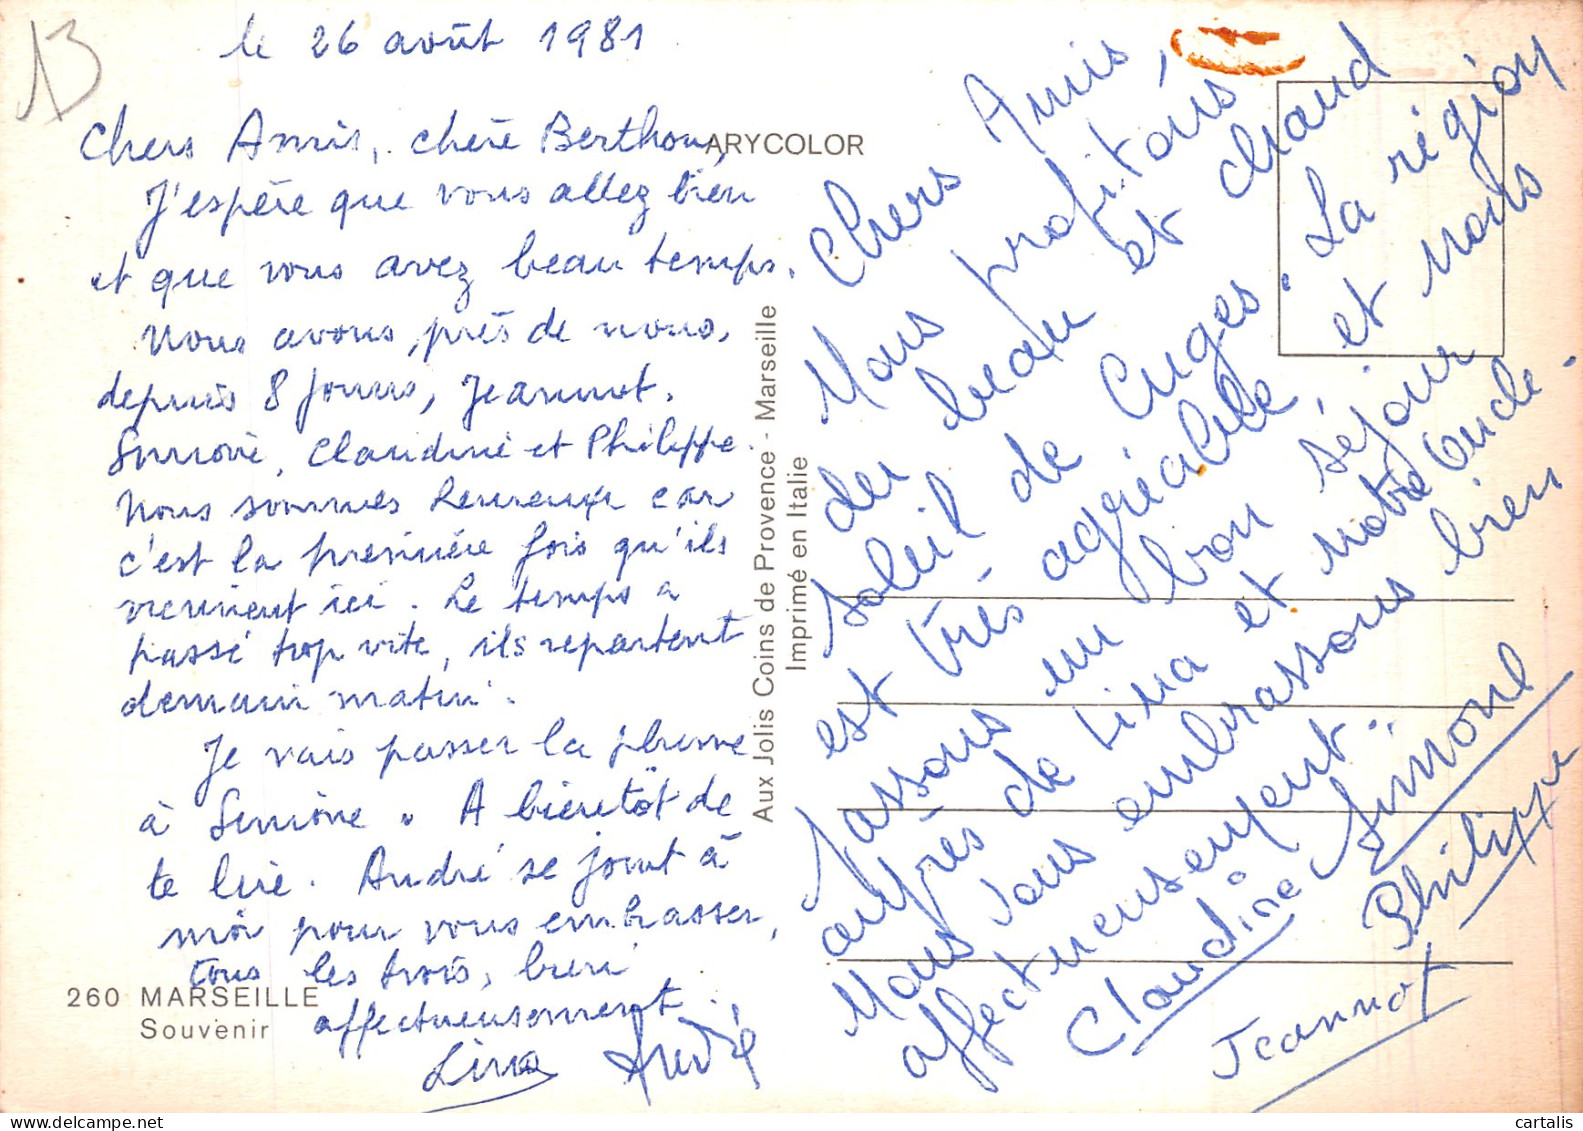 13
le 26 août 1981
Chers Amis, chère Berthon,
J'espère que vous allez bien
et que vous avez beau temps.
Nous avons, près de nous,
depuis 8 jours, Jeannot.
Simone, Claudine et Philippe.
Nous sommes heureux car
c'est la première fois qu'ils
viennent ici. Le temps a
passé trop vite, ils repartent
demain matin.
Je vais passer la plume
à Simone. A bientôt de
te lire. André se joint à
moi pour vous embrasser,
tous les trois, bien
affectueusement
Lina André
260 MARSEILLE
Souvenir
ARYCOLOR
Aux Jolis Coins de Provence - Marseille
Imprimé en Italie
Chers Amis,
Nous profitons
du beau et chaud
soleil de Cuges. La région
est très agréable, et nous
passons un bon séjour
auprès de Lina et notre Oncle.
Nous vous embrassons bien
affectueusement..
Claudine Simone
Philippe
Jeannot
cartalis